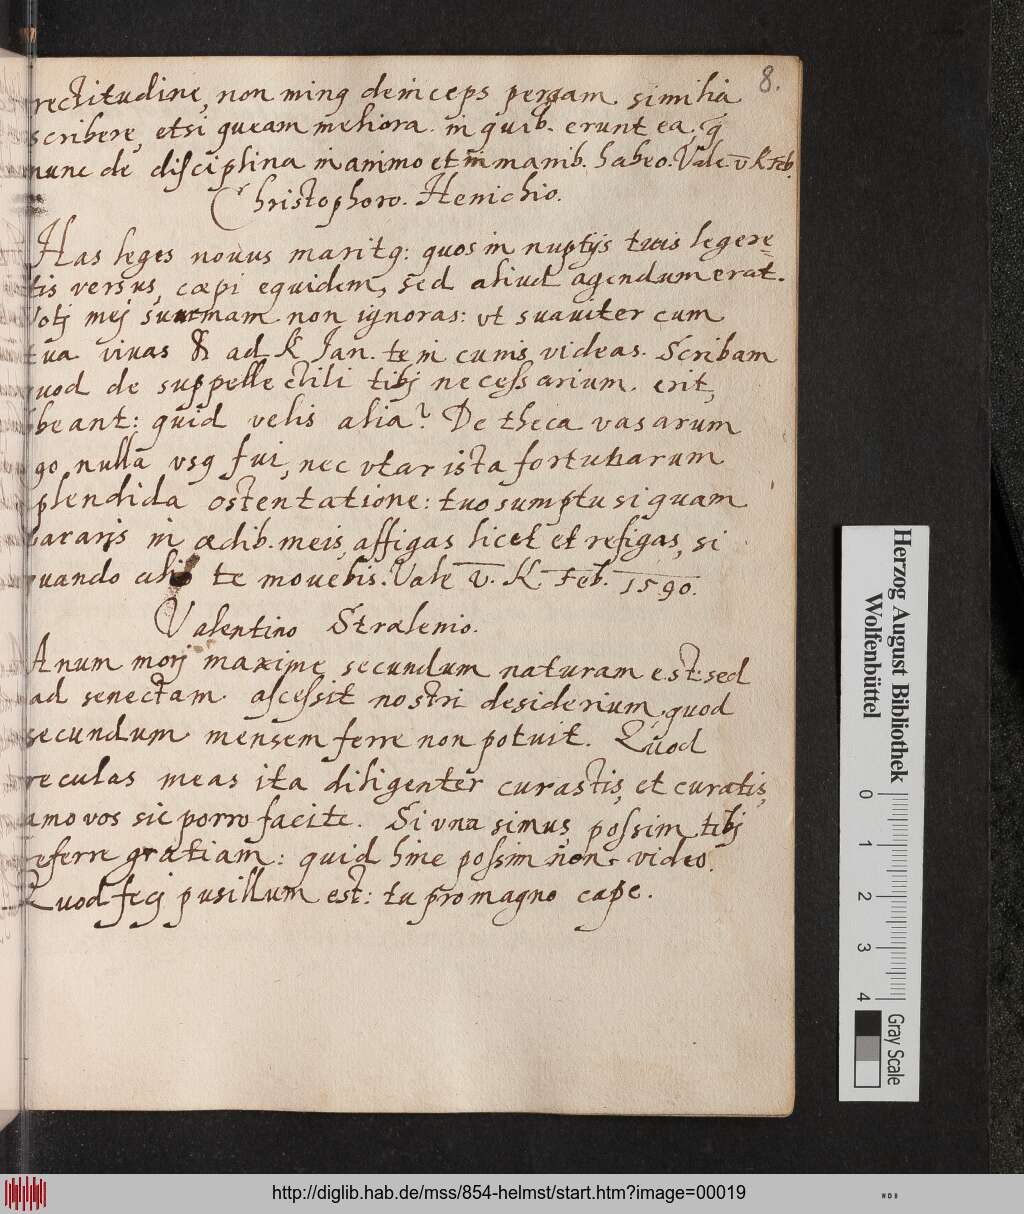 8.
rectitudine, non minq deinceps pergam similia
scribere, etsi queam meliora. in quib. erunt ea, q̄
nunc de disciplina in animo et in manib. habeo. Vale v̄ K Feb.
Christophoro. Henichio.
Has leges nouus maritq: quos in nuptijs tuis legere=
tis versus, cœpi equidem, sed aliud agendum erat.
Votj mej summam non ignoras: vt suauiter cum
tua viuas & ad K Jan. te in cunis videas. Scribam
uod de suppellectili tibj necessarium erit,
beant: quid velis alia? De theca vasarum
go nulla vsq fui, nec vtar ista fortunarum
plendida ostentatione: tuo sumptu si quam
pararis in ædib. meis, affigas licet et refigas, si
uando alio te mouebis. Vale v̄. K Feb. 1590.
Valentino Stralenio.
Anum morj maxime secundum naturam est: sed
ad senectam ascessit nostri desiderium, quod
secundum mensem ferre non potuit. Quod
reculas meas ita diligenter curastis, et curatis,
amo vos sic porro facite. Si vna simus, possim tibj
referre gratiam: quid hinc possim non video.
Quod fecj pusillum est: tu pro magno cape.
Herzog August Bibliothek
Wolfenbüttel
0 1 2 3 4
Gray Scale
http://diglib.hab.de/mss/854-helmst/start.htm?image=00019
WDB